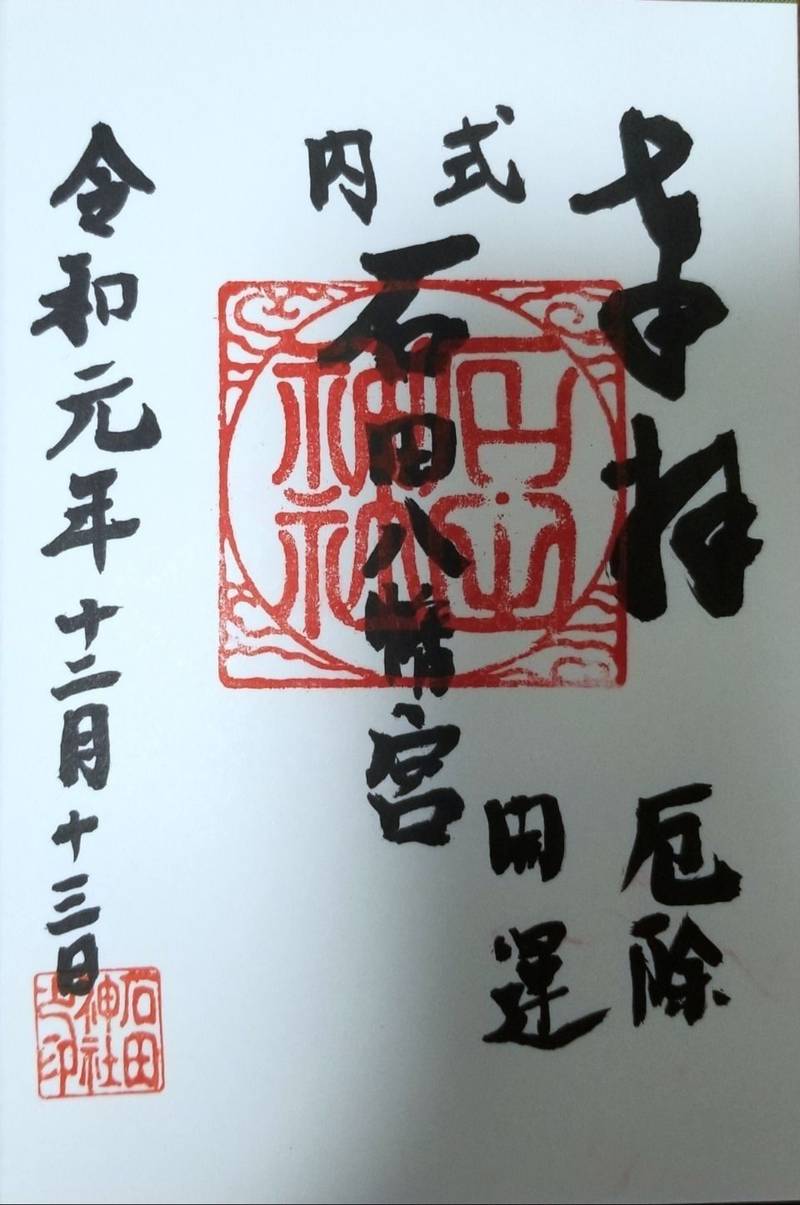 奉拝
厄除
開運
式内
石田八幡宮
石田神社
令和元年十二月十三日
石田
神社
之印